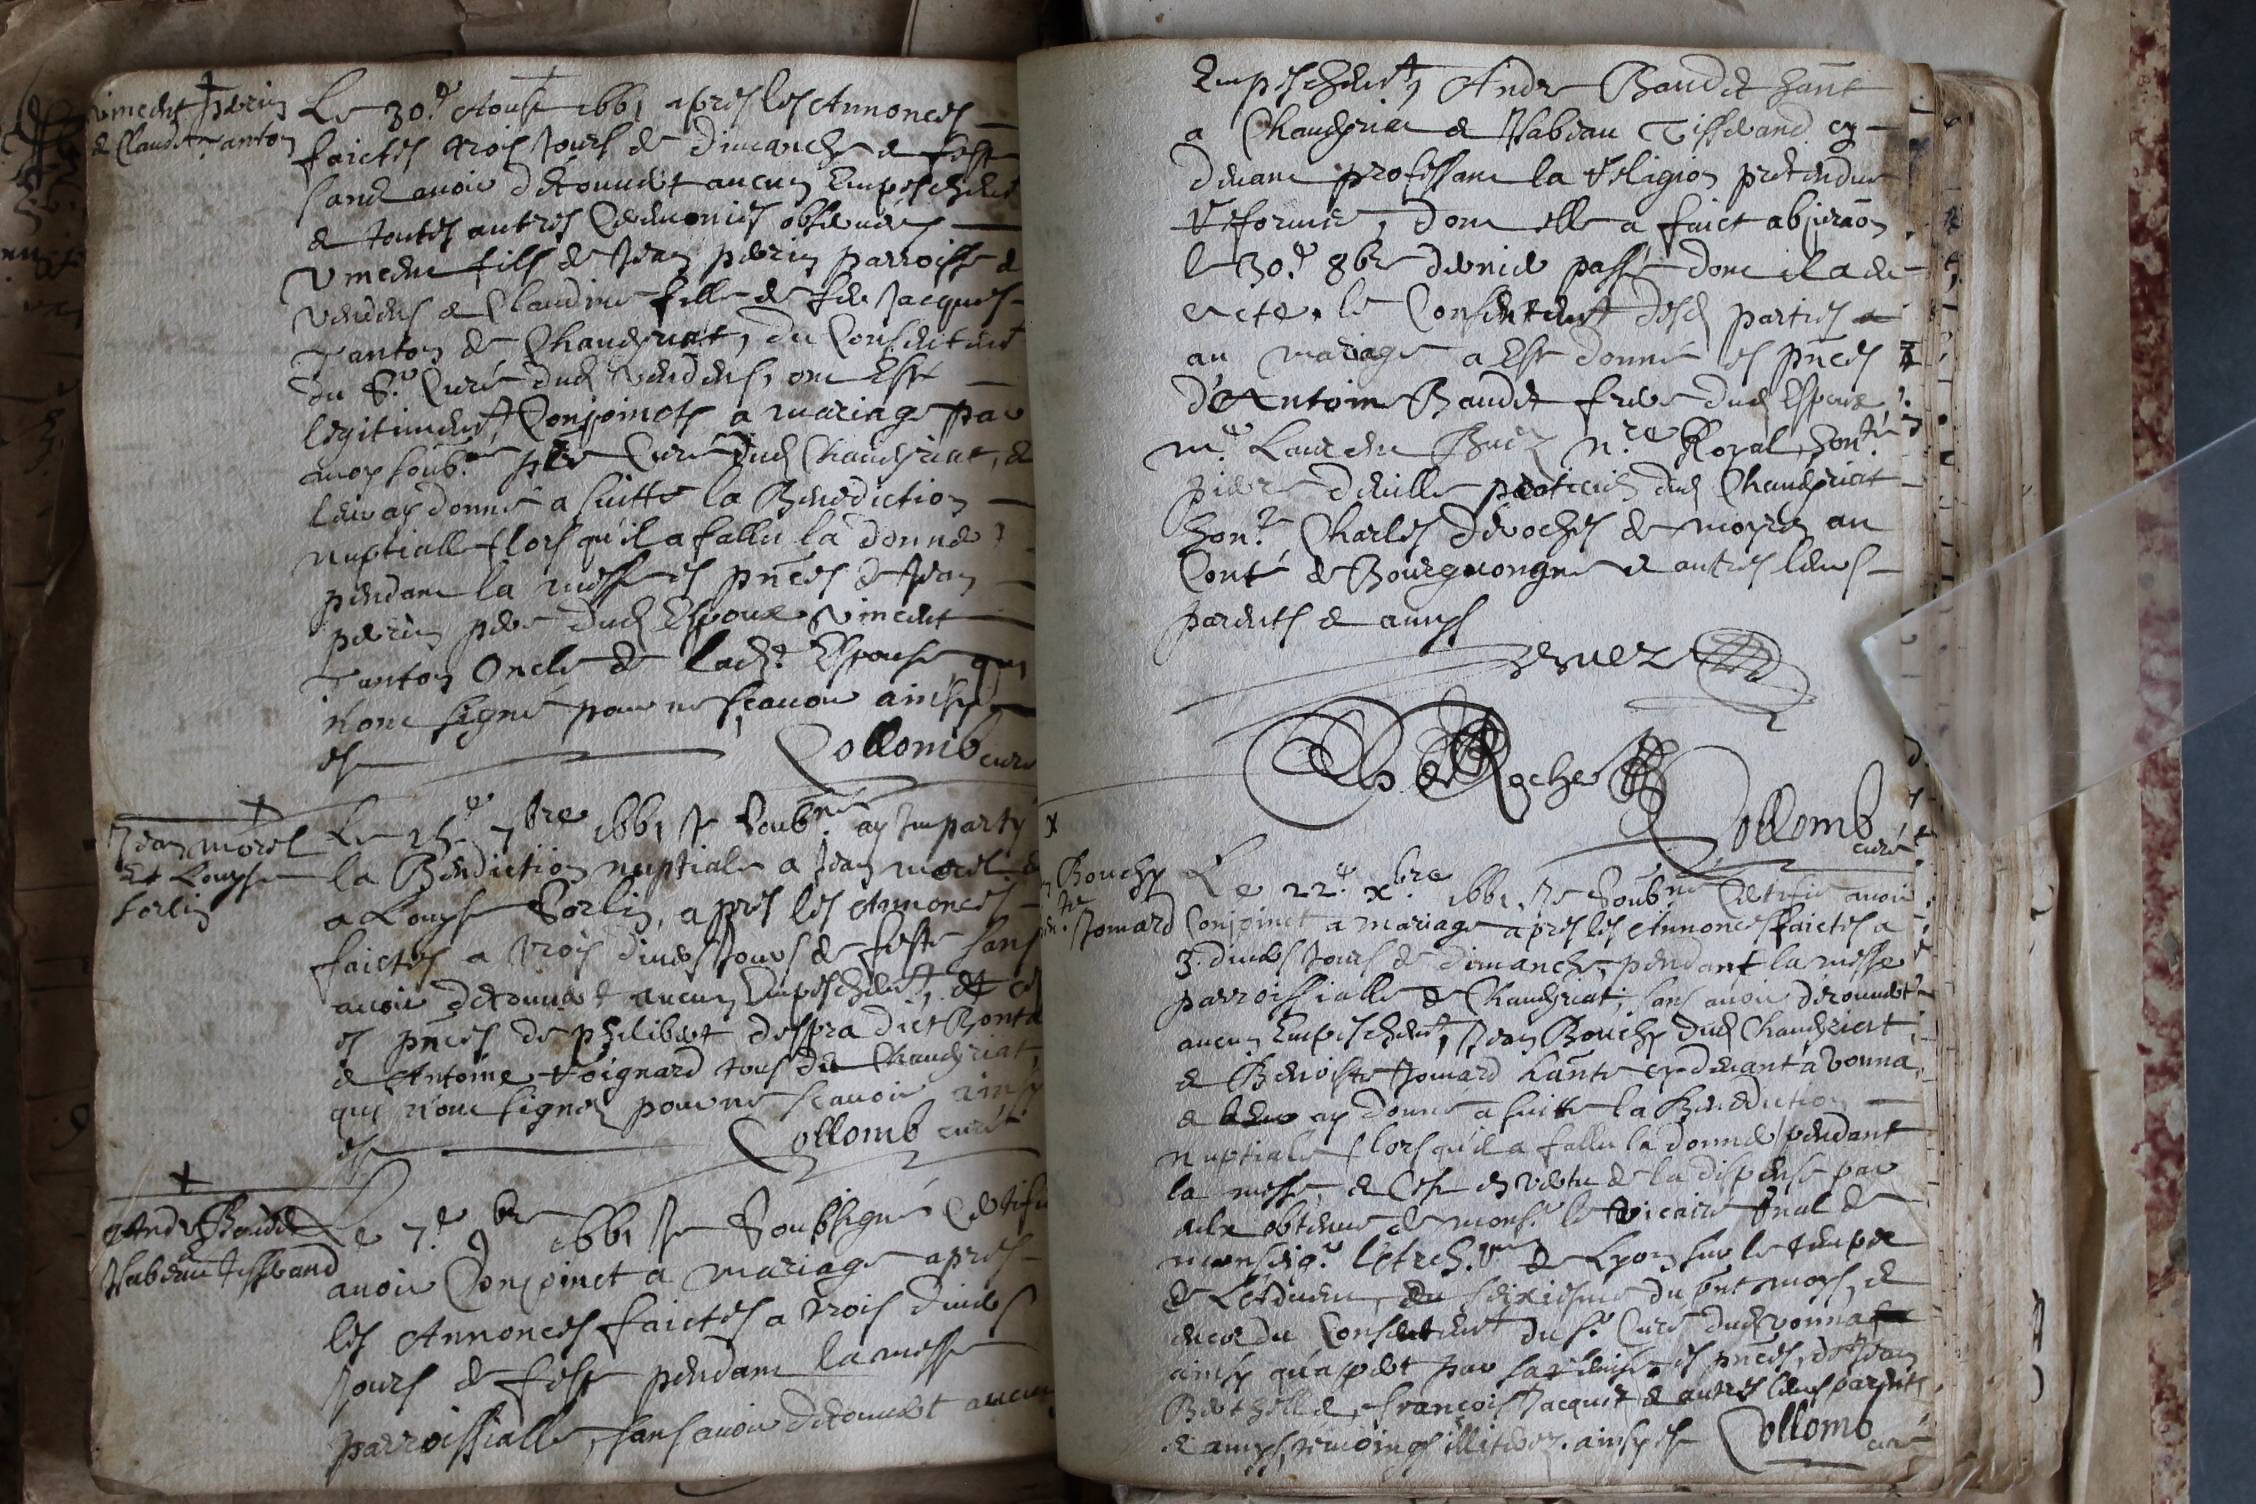 Vincent perrin
& Claudi. Tanton
Le 30.e Aoust 1661 apres les Annonces
faictes trois Jours de dimanche & feste
sans avoir decouvert aucun Empeschemt
& toutes autres Ceremonies observees
Vincent fils de Jean perrin parroisse de
& Claudine fille de feu Jacques
Tanton de Chaveyriat, du Consentemt
du Sr. Curé dud , ont Esté
legitimemt Conjoincts a mariage par
moy soub.né pbre Curé dud Chaveyriat, &
leur ay donné a suitte la Benediction
nuptialle lors qu'il a fallu la donner
pendant la messe es pnces de Jean
perrin pere dud Espoux Vincent
Tanton Oncle de lad.e Espouse qui
n'ont signé pour ne sçavoir ainsy
est Collomb curé
Jean morel
Et Louyse
sorlin
Le 25.e 7bre 1661 Je Soubné ay Imparty
la Benediction nuptiale a Jean morel &
a Louyse Sorlin, apres les Annonces
faictes a trois divers Jours de feste sans
avoir decouvert aucun Empeschemt, et ce
es pnces de philibert despra dict
& Antoine Voignard tous de Chaveyriat
qui n'ont signer pour ne scavoir ainsy
est Collomb curé
Andre Baudet
Ysabeau Tisserand
Le 7.e 9bre 1661 Je Soubsigné Certifie
avoir Conjoinct a mariage apres
les Annonces faictes a trois divers
Jours de feste pendant la messe
parroissialle, sans avoir decouvert aucun
Empeschemt, Andre Baudet hant
a Chaveyriat & Ysabeau Tisserand cy
devant professant la Religion pretendue
reformee, dont elle a faict abjuraon
le 30.e 8bre dernier passé dont il a de
acte. le Consentemt desd parties
au mariage a Esté donné es pnces
d'Antoine Baudet frere dud Espoux
me. Laurent nre Royal, honble
pierre deville praticien dud Chaveyriat
hon.e Charles derochés de au
Conté de Bourgongne & autres leurs
parents & amys
de Roche
Collomb
curé
Bouchy
Jomard
Le 22.e xbre 1661. Je Soubné Certifie avoir
Conjoinct a mariage apres les Annonces faictes a
3. divers Jours de dimanche, pendant la messe
parroissialle de Chaveyriat, sans avoir decouvert
aucun Empeschemt, Jean Bouchy dud Chaveyriat
& Benoiste Jomard hante cy devant a vonna,
& leur ay donné a suitte la Benediction
nuptiale lors qu'il a fallu la donner pendant
la messe, & Cest en vertu de la dispense par
eulx obtenue de monsr. le vicaire gnal de
monseigr. l'Archev. de Lyon sur le temps
de L'advent, du seixiesme du pnt moys, &
du Consentemt du sr. Curé dud vonna
ainsy qu'apert par sa es pnces de Jean
, françois Jacquet & autres leurs parents
& amys temoings illiterez. ainsy est Collomb
curé